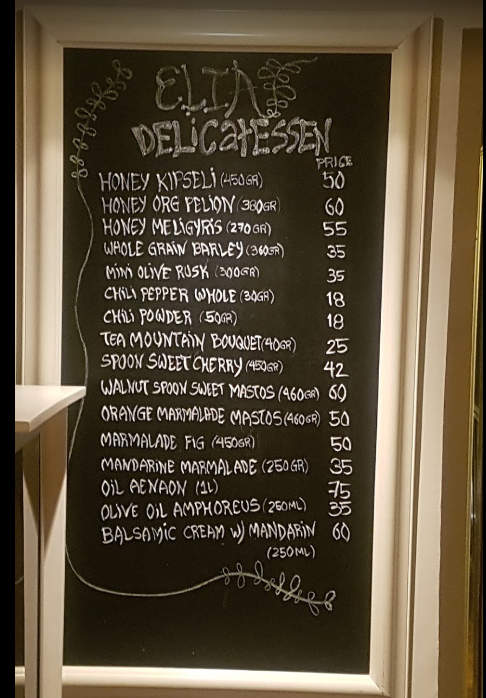 ELIA
DELICATESSEN
PRICE
HONEY KIPSELI (450GR) 50
HONEY ORG PELION (380GR) 60
HONEY MELIGYRIS (270GR) 55
WHOLE GRAIN BARLEY (360GR) 35
MINI OLIVE RUSK (300GR) 35
CHILI PEPPER WHOLE (30GR) 18
CHILI POWDER (50GR) 18
TEA MOUNTAIN BOUQUET (40GR) 25
SPOON SWEET CHERRY (450GR) 42
WALNUT SPOON SWEET MASTOS (460GR) 60
ORANGE MARMALADE MASTOS (460GR) 50
MARMALADE FIG (450GR) 50
MANDARINE MARMALADE (250GR) 35
OIL AENAON (1L) 75
OLIVE OIL AMPHOREUS (250ML) 35
BALSAMIC CREAM W/ MANDARIN 60
(250ML)